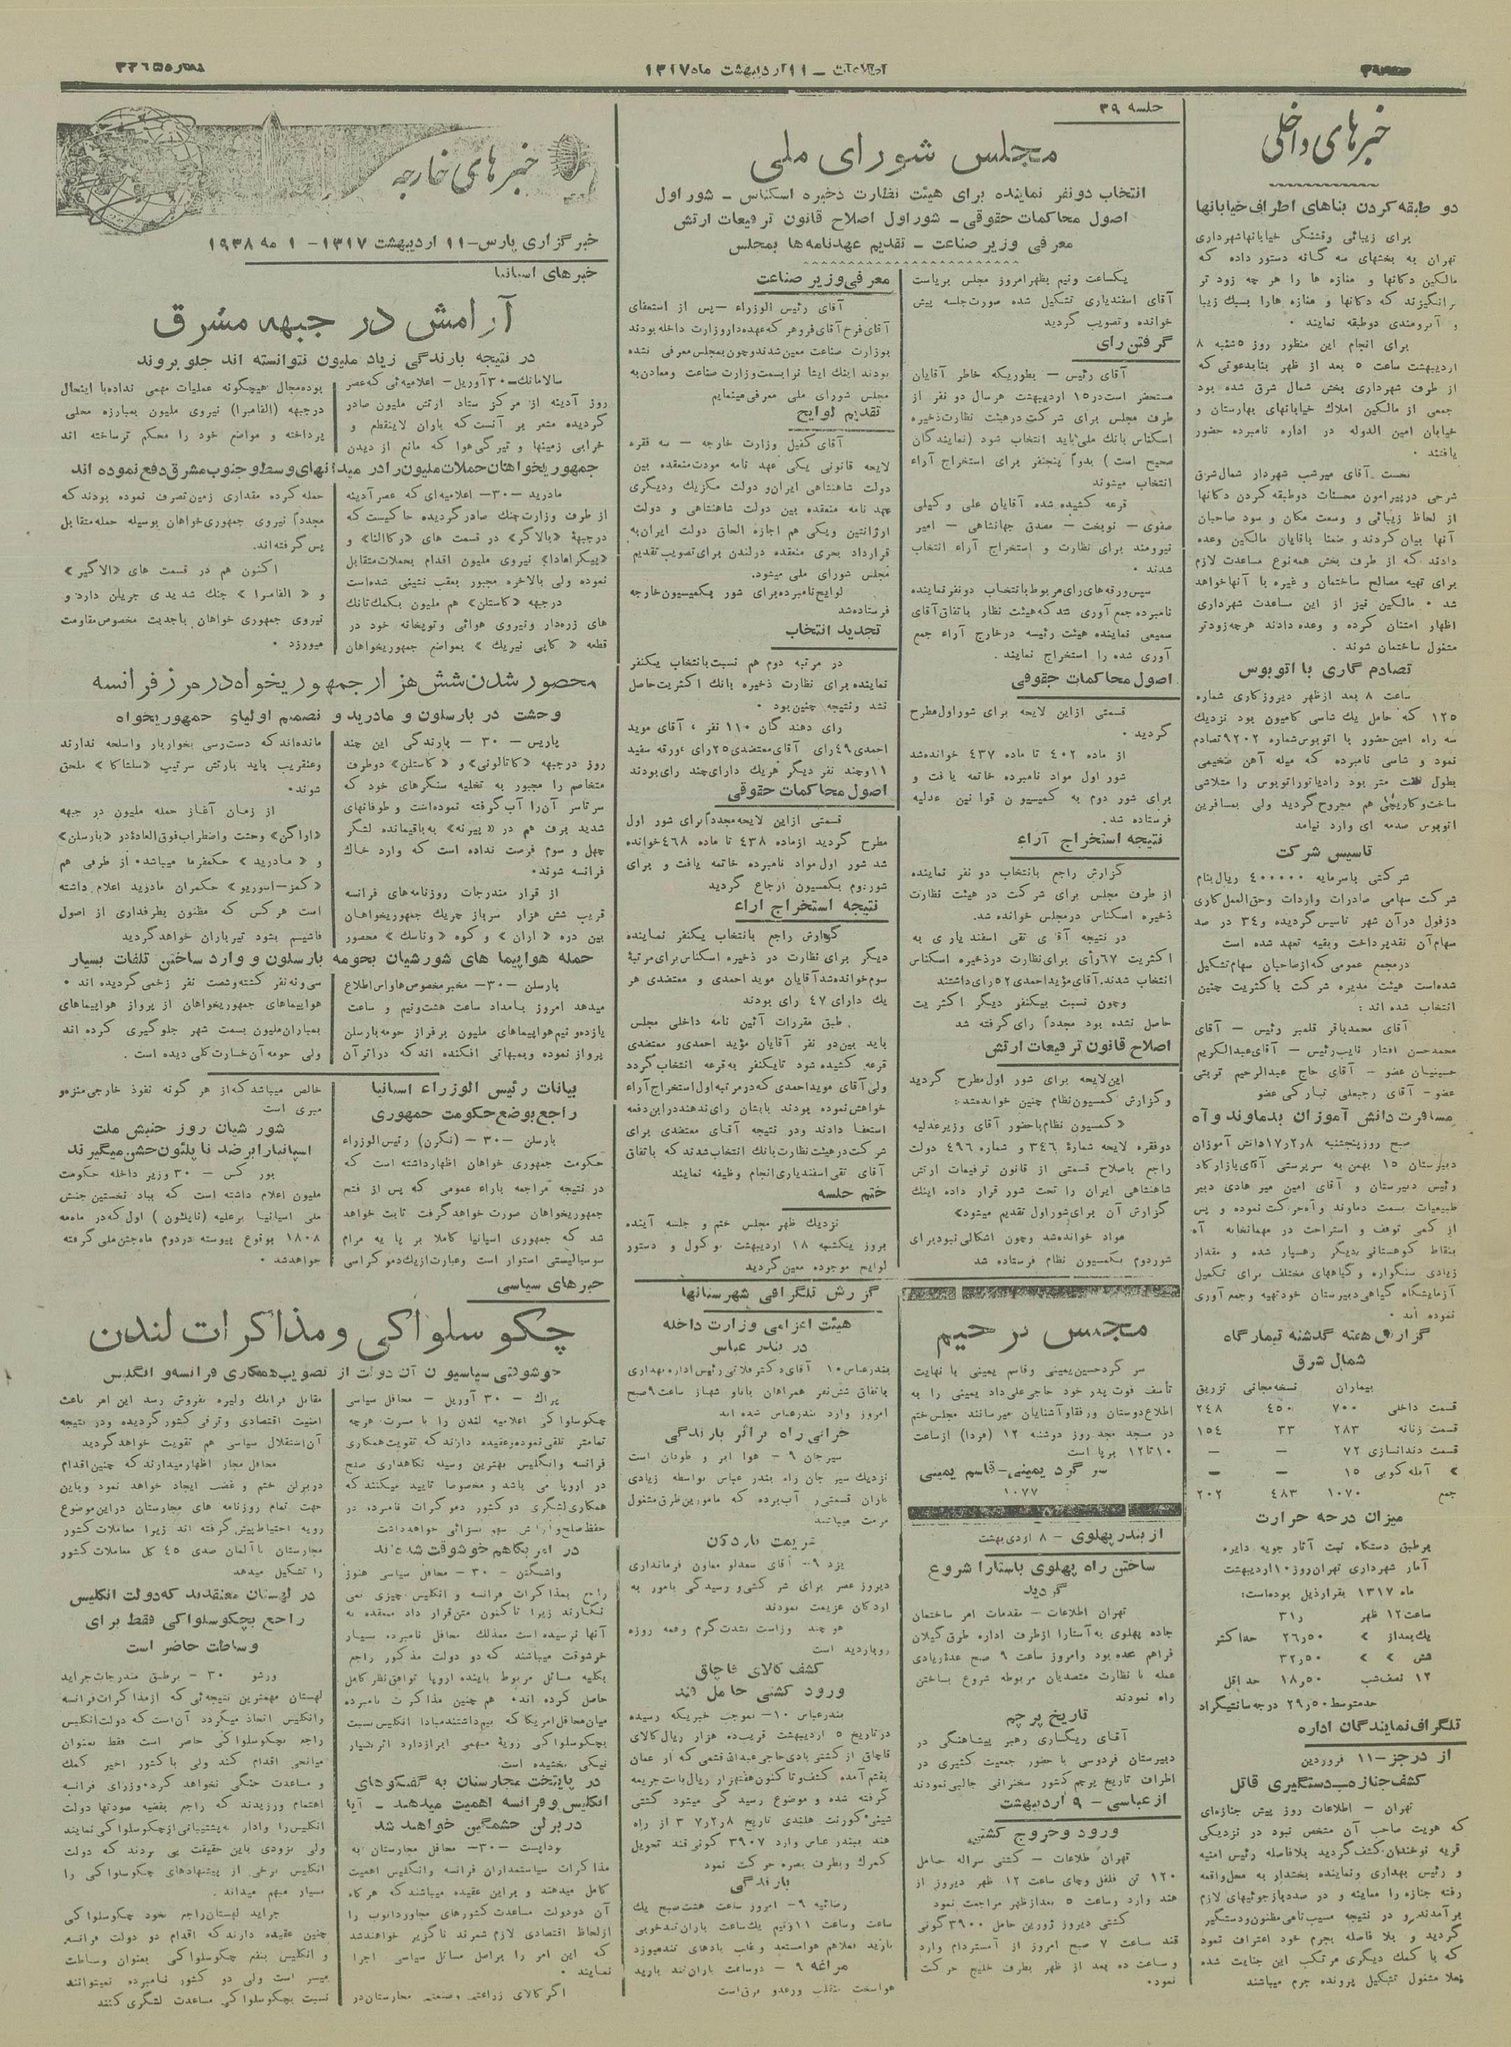 اطلاعات - ۱۱ اردیبهشت ماه ۱۳۱۷
خبرهای داخلی
دو طبقه کردن بناهای اطراف خیابانها
برای زیبائی و قشنگی خیابانها شهرداری
تهران به بخشهای سه گانه دستور داده که
مالکین دکانها و مغازه ها را هر چه زود تر
برانگیزند که دکانها و مغازه هارا بسبک زیبا
و آبرومندی دوطبقه نمایند .
برای انجام این منظور روز ۵شنبه ۸
اردیبهشت ساعت ۵ بعد از ظهر بنابدعوتی که
از طرف شهرداری بخش شمال شرق شده بود
جمعی از مالکین املاک خیابانهای بهارستان و
خیابان امین الدوله در اداره نامبرده حضور
یافتند .
نخست آقای میرشب شهردار شمال شرق
شرحی در پیرامون محسنات دوطبقه کردن دکانها
از لحاظ زیبائی و وسعت مکان و سود صاحبان
آنها بیان کردند و ضمنا بآقایان مالکین وعده
دادند که از طرف بخش همه نوع مساعدت لازم
برای تهیه مصالح ساختمان و غیره با آنها خواهد
شد . مالکین نیز از این مساعدت شهرداری
اظهار امتنان کرده و وعده دادند هرچه زودتر
مشغول ساختمان شوند .
تصادم گاری با اتوبوس
ساعت ۸ بعد ازظهر دیروز کاری شماره
۱۲۵ که حامل یک شاسی کامیون بود نزدیک
سه راه امین حضور با اتوبوس شماره ۹۲۰۲ تصادم
نمود و شاسی نامبرده که میله آهن ضخیمی
بطول هشت متر بود رادیاتور اتوبوس را متلاشی
ساخت و کاریچی هم مجروح گردید ولی بمسافرین
اتوبوس صدمه ای وارد نیامد
تاسیس شرکت
شرکتی باسرمایه ۴۰۰۰۰۰ ریال بنام
شرکت سهامی صادرات واردات وحق العمل کاری
دزفول در آن شهر تاسیس گردیده و ۳۴ در صد
سهام آن نقد پرداخت و بقیه تعهد شده است
در مجمع عمومی که از صاحبان سهام تشکیل
شده است هیئت مدیره شرکت با کثریت چنین
انتخاب شده اند :
آقای محمدباقر قلمبر رئیس - آقای
محمدحسن افشار نایب رئیس - آقای عبدالکریم
حسینیان عضو - آقای حاج عبدالرحیم تربتی
عضو - آقای رجبعلی تبارکی عضو
مسافرت دانش آموزان بدماوند و آه
صبح روز پنجشنبه ۱۷ر۲ر۸ دانش آموزان
دبیرستان ۱۵ بهمن به سرپرستی آقای بازارکاد
رئیس دبیرستان و آقای امین میر هادی دبیر
طبیعیات بسمت دماوند و آه حرکت نموده و پس
از کمی توقف و استراحت در مهمانخانه آه
بنقاط کوهستانی دیگر رهسپار شده و مقدار
زیادی سنگواره و گیاههای مختلف برای تکمیل
آزمایشگاه گیاهی دبیرستان خود تهیه و جمع آوری
نموده اند .
گزارش هفته گذشته تیمارگاه
شمال شرق
بیماران نسخه مجانی تزریق
قسمت داخلی ۷۰۰ ۴۵۰ ۲۴۸
قسمت زنانه ۲۸۳ ۳۳ ۱۵۴
قسمت دندانسازی ۷۲ - -
» آبله کوبی ۱۵ - -
جمع ۱۰۷۰ ۴۸۳ ۲۰۲
میزان درجه حرارت
برطبق دستگاه ثبت آثار جویه دایره
آمار شهرداری تهران روز ۱۰ اردیبهشت
ماه ۱۳۱۷ بقرار ذیل بوده است:
ساعت ۱۲ ظهر ر۳۱
یک بعداز » ۵۰ر۲۶ حداکثر
شش » » ۵۰ر۳۲
۱۲ نصف شب ۵۰ر۱۸ حداقل
حدمتوسط ۵۰ر۲۹ درجه سانتیگراد
تلگراف نمایندگان اداره
از درجز - ۱۱ فروردین
کشف جنازه بدستگیری قاتل
تهران - اطلاعات روز پیش جنازه ای
که هویت صاحب آن مشخص نبود در نزدیکی
قریه نوخندان کشف گردید بلافاصله رئیس امنیه
و رئیس بهداری و نماینده بخشدار به محل واقعه
رفته جنازه را معاینه و در صدد باز جوئیهای لازم
برآمدند و در نتیجه مسیب نامی مظنون و دستگیر
گردید و بلا فاصله بجرم خود اعتراف نمود
که با کمک دیگری مرتکب این جنایت شده
فعلا مشغول تشکیل پرونده جرم میباشند
جلسه ۳۹
مجلس شورای ملی
انتخاب دو نفر نماینده برای هیئت نظارت ذخیره اسکناس - شور اول
اصول محاکمات حقوقی - شور اول اصلاح قانون ترفیعات ارتش
معرفی وزیر صناعت - تقدیم عهدنامه ها بمجلس
یکساعت و نیم بظهر امروز مجلس بریاست
آقای اسفندیاری تشکیل شده صورت جلسه پیش
خوانده و تصویب گردید
گرفتن رای
آقای رئیس - بطوریکه خاطر آقایان
مستحضر است در ۱۵ اردیبهشت هر سال دو نفر از
طرف مجلس برای شرکت در هیئت نظارت ذخیره
اسکناس بانک ملی باید انتخاب شود (نمایندگان
صحیح است) بدواً پنجنفر برای استخراج آراء
انتخاب میشوند
قرعه کشیده شده آقایان علی وکیلی
صفوی - نوبخت - مصدق جهانشاهی - امیر
نیرومند برای نظارت و استخراج آراء انتخاب
شدند .
سپس ورقه های رای مربوط بانتخاب دو نفر نماینده
نامبرده جمع آوری شد که هیئت نظار باتفاق آقای
سمیعی نماینده هیئت رئیسه در خارج آراء جمع
آوری شده را استخراج نمایند .
اصول محاکمات حقوقی
قسمتی از این لایحه برای شور اول مطرح
گردید .
از ماده ۴۰۲ تا ماده ۴۳۷ خوانده شد
شور اول مواد نامبرده خاتمه یافت و
برای شور دوم به کمیسیون قوانین عدلیه
فرستاده شد.
نتیجه استخراج آراء
گزارش راجع بانتخاب دو نفر نماینده
از طرف مجلس برای شرکت در هیئت نظارت
ذخیره اسکناس در مجلس خوانده شد.
در نتیجه آقای تقی اسفندیاری به
اکثریت ۶۷ رأی برای نظارت در ذخیره اسکناس
انتخاب شدند. آقای مؤید احمدی ۵۲ رای داشتند
و چون نسبت بیکنفر دیگر اکثریت
حاصل نشده بود مجدداً رای گرفته شد
اصلاح قانون ترفیعات ارتش
این لایحه برای شور اول مطرح گردید
و گزارش کمسیون نظام چنین خوانده شد:
« کمسیون نظام با حضور آقای وزیر عدلیه
دوفقره لایحه شماره ۳۴۶ و شماره ۴۹۶ دولت
راجع باصلاح قسمتی از قانون ترفیعات ارتش
شاهنشاهی ایران را تحت شور قرار داده اینک
گزارش آن برای شور اول تقدیم میشود»
مواد خوانده شد و چون اشکالی نبود برای
شور دوم بکمسیون نظام فرستاده شد
مجلس ترحیم
سر گرد حسین یمینی و قاسم یمینی با نهایت
تأسف فوت پدر خود حاجی علی داد یمینی را به
اطلاع دوستان و رفقا و آشنایان میرسانند مجلس ختم
در مسجد مجد روز دوشنبه ۱۲ (فردا) از ساعت
۱۰ تا ۱۲ برپا است
سرگرد یمینی - قاسم یمینی
۱۰۷۷
از بندر پهلوی - ۸ اردیبهشت
ساختن راه پهلوی باستارا شروع
گردید
تهران اطلاعات - مقدمات امر ساختمان
جاده پهلوی به آستارا از طرف اداره طرق گیلان
فراهم شده بود و امروز ساعت ۹ صبح عده زیادی
عمله با نظارت متصدیان مربوطه شروع بساختن
راه نمودند
تاریخ پرچم
آقای ریگساری رهبر پیشاهنگی در
دبیرستان فردوسی با حضور جمعیت کثیری در
اطراف تاریخ پرچم کشور سخنرانی جالبی نمودند
از عباسی - ۹ اردیبهشت
ورود و خروج کشتی
تهران اطلاعات - کشتی سراله حامل
۱۲۰ تن فلفل و چای ساعت ۱۲ ظهر دیروز از
هند وارد و ساعت ۵ بعد از ظهر مراجعت نمود
کشتی دیروز ژورین حامل ۳۹۰۰ گونی
قند ساعت ۷ صبح امروز از آمستردام وارد
و ساعت ده بعد از ظهر بطرف خلیج حرکت
نمود.
معرفی وزیر صناعت
آقای رئیس الوزراء - پس از استعفای
آقای فرخ آقای فروهر که عهده دار وزارت داخله بودند
بوزارت صناعت معین شدند و چون بمجلس معرفی نشده
بودند اینک ایشانرا بسمت وزارت صناعت و معادن به
مجلس شورای ملی معرفی مینمایم
تقدیم لوایح
آقای کفیل وزارت خارجه - سه فقره
لایحه قانونی یکی عهد نامه مودت منعقده بین
دولت شاهنشاهی ایران و دولت مکزیک و دیگری
عهد نامه منعقده بین دولت شاهنشاهی و دولت
ارژانتین و یکی هم اجازه الحاق دولت ایران به
قرارداد بحری منعقده در لندن برای تصویب تقدیم
مجلس شورای ملی میشود.
لوایح نامبرده برای شور بکمیسیون خارجه
فرستاده شد
تجدید انتخاب
در مرتبه دوم هم نسبت بانتخاب یکنفر
نماینده برای نظارت ذخیره بانک اکثریت حاصل
نشد و نتیجه چنین بود .
رای دهندگان ۱۱۰ نفر ، آقای موید
احمدی ۴۹ رای آقای معتضدی ۲۵ رای ورقه سفید
۱۱ و چند نفر دیگر هر یک دارای چند رای بودند
اصول محاکمات حقوقی
قسمتی از این لایحه مجدداً برای شور اول
مطرح گردید از ماده ۴۳۸ تا ماده ۴۶۸ خوانده
شد شور اول مواد نامبرده خاتمه یافت و برای
شور دوم بکمسیون ارجاع گردید
نتیجه استخراج اراء
گزارش راجع بانتخاب یکنفر نماینده
دیگر برای نظارت در ذخیره اسکناس برای مرتبۀ
سوم خوانده شد آقایان موید احمدی و معتضدی هر
یک دارای ۴۷ رای بودند
طبق مقررات آئین نامه داخلی مجلس
باید بین دو نفر آقایان مؤید احمدی و معتضدی
قرعه کشیده شود تا یکنفر به قرعه انتخاب گردد
ولی آقای موید احمدی که در مرتبه اول استخراج آراء
خواهش نموده بودند بایشان رای ندهند در این دفعه
استعفا دادند و در نتیجه آقای معتضدی برای
شرکت در هیئت نظارت بانک انتخاب شدند که باتفاق
آقای تقی اسفندیاری انجام وظیفه نمایند
ختم جلسه
نزدیک ظهر مجلس ختم و جلسه آینده
بروز یکشنبه ۱۸ اردیبهشت موکول و دستور
لوایح موجوده معین گردید
گزارش تلگرافی شهرستانها
هیئت اعزامی وزارت داخله
در بندر عباس
بندر عباس ۱۰ آقای دکتر ملاتی رئیس اداره بهداری
باتفاق شش نفر همراهان باناو شهباز ساعت ۹ صبح
امروز وارد بندرعباس شده اند
خرابی راه براثر بارندگی
سیرجان ۹ - هوا ابر و طوفان است
نزدیک سیرجان راه بندر عباس بواسطه زیادی
باران قسمتی را آب برده که مامورین طرق مشغول
مرمت میباشند
عزیمت باردکان
یزد ۹ - آقای سعدلو معاون فرمانداری
دیروز عصر برای سرکشی و رسیدگی بامور به
اردکان عزیمت نمودند
کشف کالای قاچاق
ورود کشتی حامل قند
بندرعباس ۱۰ - بموجب خبریکه رسیده
در تاریخ ۵ اردیبهشت قریب ده هزار ریال کالای
قاچاق از کشتی بادی حاجی عبدالله قشمی که از عمان
بقشم آمده کشف و تاکنون هفتهزار ریال بابت جریمه
گرفته شده و موضوع رسیدگی میشود کشتی
هند ببندر عباس وارد ۳۹۰۷ گونی قند تحویل
گمرک و بطرف بصره حرکت نمود
بارندگی
رضائیه ۹ - امروز ساعت هشت صبح یک
ساعت و ساعت ۱۱ ونیم یک ساعت باران تند خوبی
مراغه ۹ - دوساعت باران تند بارید
خبرهای خارجه
خبرگزاری پارس - ۱۱ اردیبهشت ۱۳۱۷ - ۱ مه ۱۹۳۸
خبرهای اسپانیا
آرامش در جبهه مشرق
در نتیجه بارندگی زیاد ملیون نتوانسته اند جلو بروند
سالامانک - ۳۰ آوریل - اعلامیه ئی که عصر
روز آدینه از مرکز ستاد ارتش ملیون صادر
گردیده مشعر بر آنست که باران لاینقطع و
خرابی زمینها و تیرگی هوا که مانع از دیدن
بوده مجال هیچگونه عملیات مهمی نداده با اینحال
در جبهه (الفامبرا) نیروی ملیون بمبارزه محلی
پرداخته و مواضع خود را محکم ترساخته اند
جمهوریخواهان حملات ملیون را در میدانهای وسط و جنوب مشرق دفع نموده اند
مادرید - ۳۰ - اعلامیه ای که عصر آدینه
از طرف وزارت جنگ صادر گردیده حاکیست که
در جبهۀ «بالاگر» در قسمت های «رکاالتا» و
«پیکراهادا» نیروی ملیون اقدام بحملات متقابل
نموده ولی بالاخره مجبور بعقب نشینی شده است
در جبهه «کاستلن» هم ملیون بکمک تانک
های زره دار و نیروی هوائی و توپخانه خود در
قطعه «کاپی نیریک» بمواضع جمهوریخواهان
حمله کرده مقداری زمین تصرف نموده بودند که
مجدداً نیروی جمهوری خواهان بوسیله حمله متقابل
پس گرفته اند.
اکنون هم در قسمت های «الاگیر»
و «الفامبرا» جنگ شدیدی جریان دارد و
نیروی جمهوری خواهان باجدیت مخصوص مقاومت
میورزد .
محصور شدن شش هزار جمهوریخواه در مرز فرانسه
وحشت در بارسلون و مادرید و تصمیم اولیای جمهوریخواه
پاریس - ۳۰ - بارندگی این چند
روز در جبهه «کاتالونی» و «کاستلن» دوطرف
متخاصم را مجبور به تخلیه سنگرهای خود که
سرتاسر آن را آب گرفته نموده است و طوفانهای
شدید برف هم در «پیرنه» به باقیمانده لشگر
چهل و سوم فرصت نداده است که وارد خاک
فرانسه شوند.
از قرار مندرجات روزنامه های فرانسه
قریب شش هزار سرباز چریک جمهوریخواهان
بین دره «اران» و کوه «وناسک» محصور
مانده اند که دست رسی بخواربار و اسلحه ندارند
و عنقریب باید بارتش سرتیپ «سلشاگا» ملحق
شوند.
از زمان آغاز حمله ملیون در جبهه
«اراگن» وحشت و اضطراب فوق العادۀ در «بارسلن»
و «مادرید» حکمفرما میباشد. از طرفی هم
«گمز - اسوریو» حکمران مادرید اعلام داشته
است هرکس که مظنون بطرفداری از اصول
فاشیسم بشود تیرباران خواهد گردید
حمله هواپیما های شورشیان بحومه بارسلون و وارد ساختن تلفات بسیار
بارسلن - ۳۰ - مخبر مخصوص هاواس اطلاع
میدهد امروز بامداد ساعت هشت و نیم و ساعت
یازده و نیم هواپیماهای ملیون برفراز حومه بارسلن
پرواز نموده و بمبهائی افکنده اند که در اثر آن
سی و نه نفر کشته و شصت نفر زخمی گردیده اند .
هواپیماهای جمهوریخواهان از پرواز هواپیماهای
بمباران ملیون بسمت شهر جلوگیری کرده اند
ولی حومه آن خسارت کلی دیده است .
بیانات رئیس الوزراء اسپانیا
راجع بوضع حکومت جمهوری
بارسلن - ۳۰ - (نگرن) رئیس الوزراء
حکومت جمهوری خواهان اظهار داشته است که
در نتیجه مراجعه باراء عمومی که پس از فتح
جمهوریخواهان صورت خواهد گرفت ثابت خواهد
شد که جمهوری اسپانیا کاملا بر پایه مرام
سوسیالیستی استوار است و عبارت از یک دموکراسی
خالص میباشد که از هر گونه نفوذ خارجی منزه و
مبری است
شورشیان روز جنبش ملت
اسپانیا را برضد ناپلئون جشن میگیرند
بورگس - ۳۰ وزیر داخله حکومت
ملیون اعلام داشته است که بیاد نخستین جنبش
ملی اسپانیا برعلیه (ناپلئون) اول که در ماه مه
۱۸۰۸ بوقوع پیوسته در دوم ماه جشن ملی گرفته
خواهد شد .
خبرهای سیاسی
چکوسلواکی و مذاکرات لندن
خوشوقتی سیاسیون آن دولت از تصویب همکاری فرانسه و انگلیس
پراگ - ۳۰ آوریل - محافل سیاسی
چکوسلواکی اعلامیه لندن را با مسرت هرچه
تمامتر تلقی نموده و عقیده دارند که تقویت همکاری
فرانسه و انگلیس بهترین وسیله نگاهداری صلح
در اروپا می باشد و مخصوصا تایید میکنند که
همکاری لشگری دو کشور دموکرات نامبرده در
حفظ صلح و آرامش سهم بسزائی خواهد داشت
در امریکا هم خوشوقت شده اند
واشنگتن - ۳۰ - محافل سیاسی هنوز
راجع بمذاکرات فرانسه و انگلیس چیزی نمی
نگارند زیرا تاکنون متن قرار داد منعقده به
آنها نرسیده است معذلک محافل نامبرده بسیار
خوشوقت میباشند که دو دولت مذکور راجع
بکلیه مسائل مربوط باینده اروپا توافق نظر کامل
حاصل کرده اند. هم چنین مذاکرات نامبرده
میان محافل امریکا که بیم داشتند مبادا انگلیس نسبت
بچکوسلواکی رویۀ مبهمی ابراز دارد اثر بسیار
نیکی بخشیده است.
در پایتخت مجارستان به گفتگوهای
انگلیس و فرانسه اهمیت میدهند - آیا
در برلن خشمگین خواهند شد
بوداپست - ۳۰ - محافل مجارستان به
مذاکرات سیاستمداران فرانسه و انگلیس اهمیت
کامل میدهند و براین عقیده میباشند که هرگاه
آن دو دولت مساعدت کشورهای مجاور دانوب را
از لحاظ اقتصادی لازم شمرند ناگزیر خواهند شد
که این امر را براصل مسائل سیاسی اجرا
نمایند .
اگر کالای زراعتی و صنعتی مجارستان در
مقابل فرانک و لیره بفروش رسد این امر باعث
امنیت اقتصادی و ترقی کشور گردیده و در نتیجه
آن استقلال سیاسی هم تقویت خواهد گردید
محافل مجار اظهار میدارند که چنین اقدام
در برلن خشم و غضب ایجاد خواهد نمود و باین
جهت تمام روزنامه های مجارستان در این موضوع
رویه احتیاط پیش گرفته اند زیرا معاملات کشور
مجارستان با آلمان صدی ۴۵ کل معاملات کشور
را تشکیل میدهد
در لهستان معتقدند که دولت انگلیس
راجع بچکوسلواکی فقط برای
وساطت حاضر است
ورشو ۳۰ - برطبق مندرجات جراید
لهستان مهمترین نتیجه ئی که از مذاکرات فرانسه
و انگلیس اتخاذ میگردد آن است که دولت انگلیس
راجع بچکوسلواکی حاضر است فقط بعنوان
میانجی اقدام کند ولی با کشور اخیر کمک
و مساعدت جنگی نخواهد کرد. وزرای فرانسه
اهتمام ورزیدند که راجع بقضیه سودتها دولت
انگلیس را وادار به پشتیبانی از چکوسلواکی نمایند
ولی بزودی باین حقیقت پی بردند که دولت
انگلیس برخی از پیشنهادهای چکوسلواکی را
بسیار مبهم میداند .
جراید لهستان راجع بخود چکوسلواکی
چنین عقیده دارند که اقدام دو دولت فرانسه
و انگلیس بنفع چکوسلواکی بعنوان وساطت
میسر است ولی دو کشور نامبرده نمیتوانند
نسبت بچکوسلواکی مساعدت لشگری کنند